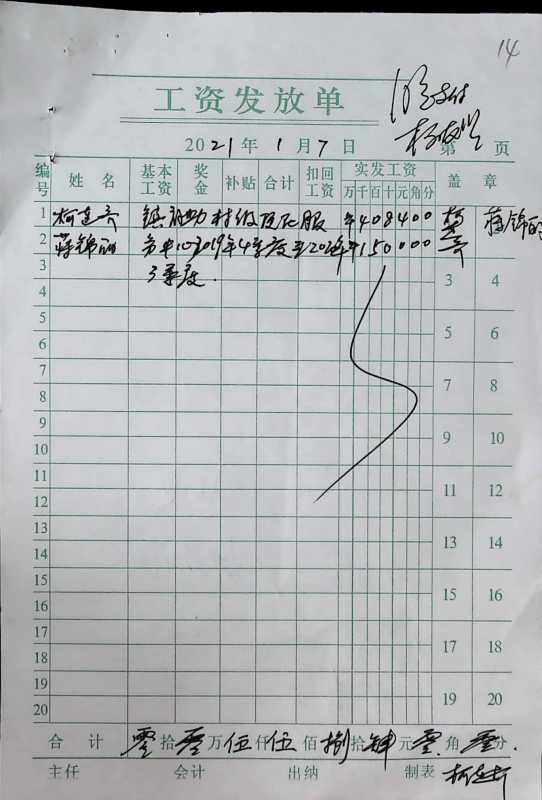 14
工资发放单
2021年1月7日 第 页
编号 姓名 基本工资 奖金 补贴 合计 扣回工资 实发工资 万千百十元角分 盖章
1 柯建齐 镇补助村级 服 ¥408400
2 蒋锦丽 务中心2019年4季度至2020年 ¥150000 蒋锦丽
3 3季度. 3 4
4
5 5 6
6
7 7 8
8
9 9 10
10
11 11 12
12
13 13 14
14
15 15 16
16
17 17 18
18
19 19 20
20
合计 零拾零万伍仟伍佰捌拾肆元零角零分.
主任 会计 出纳 制表